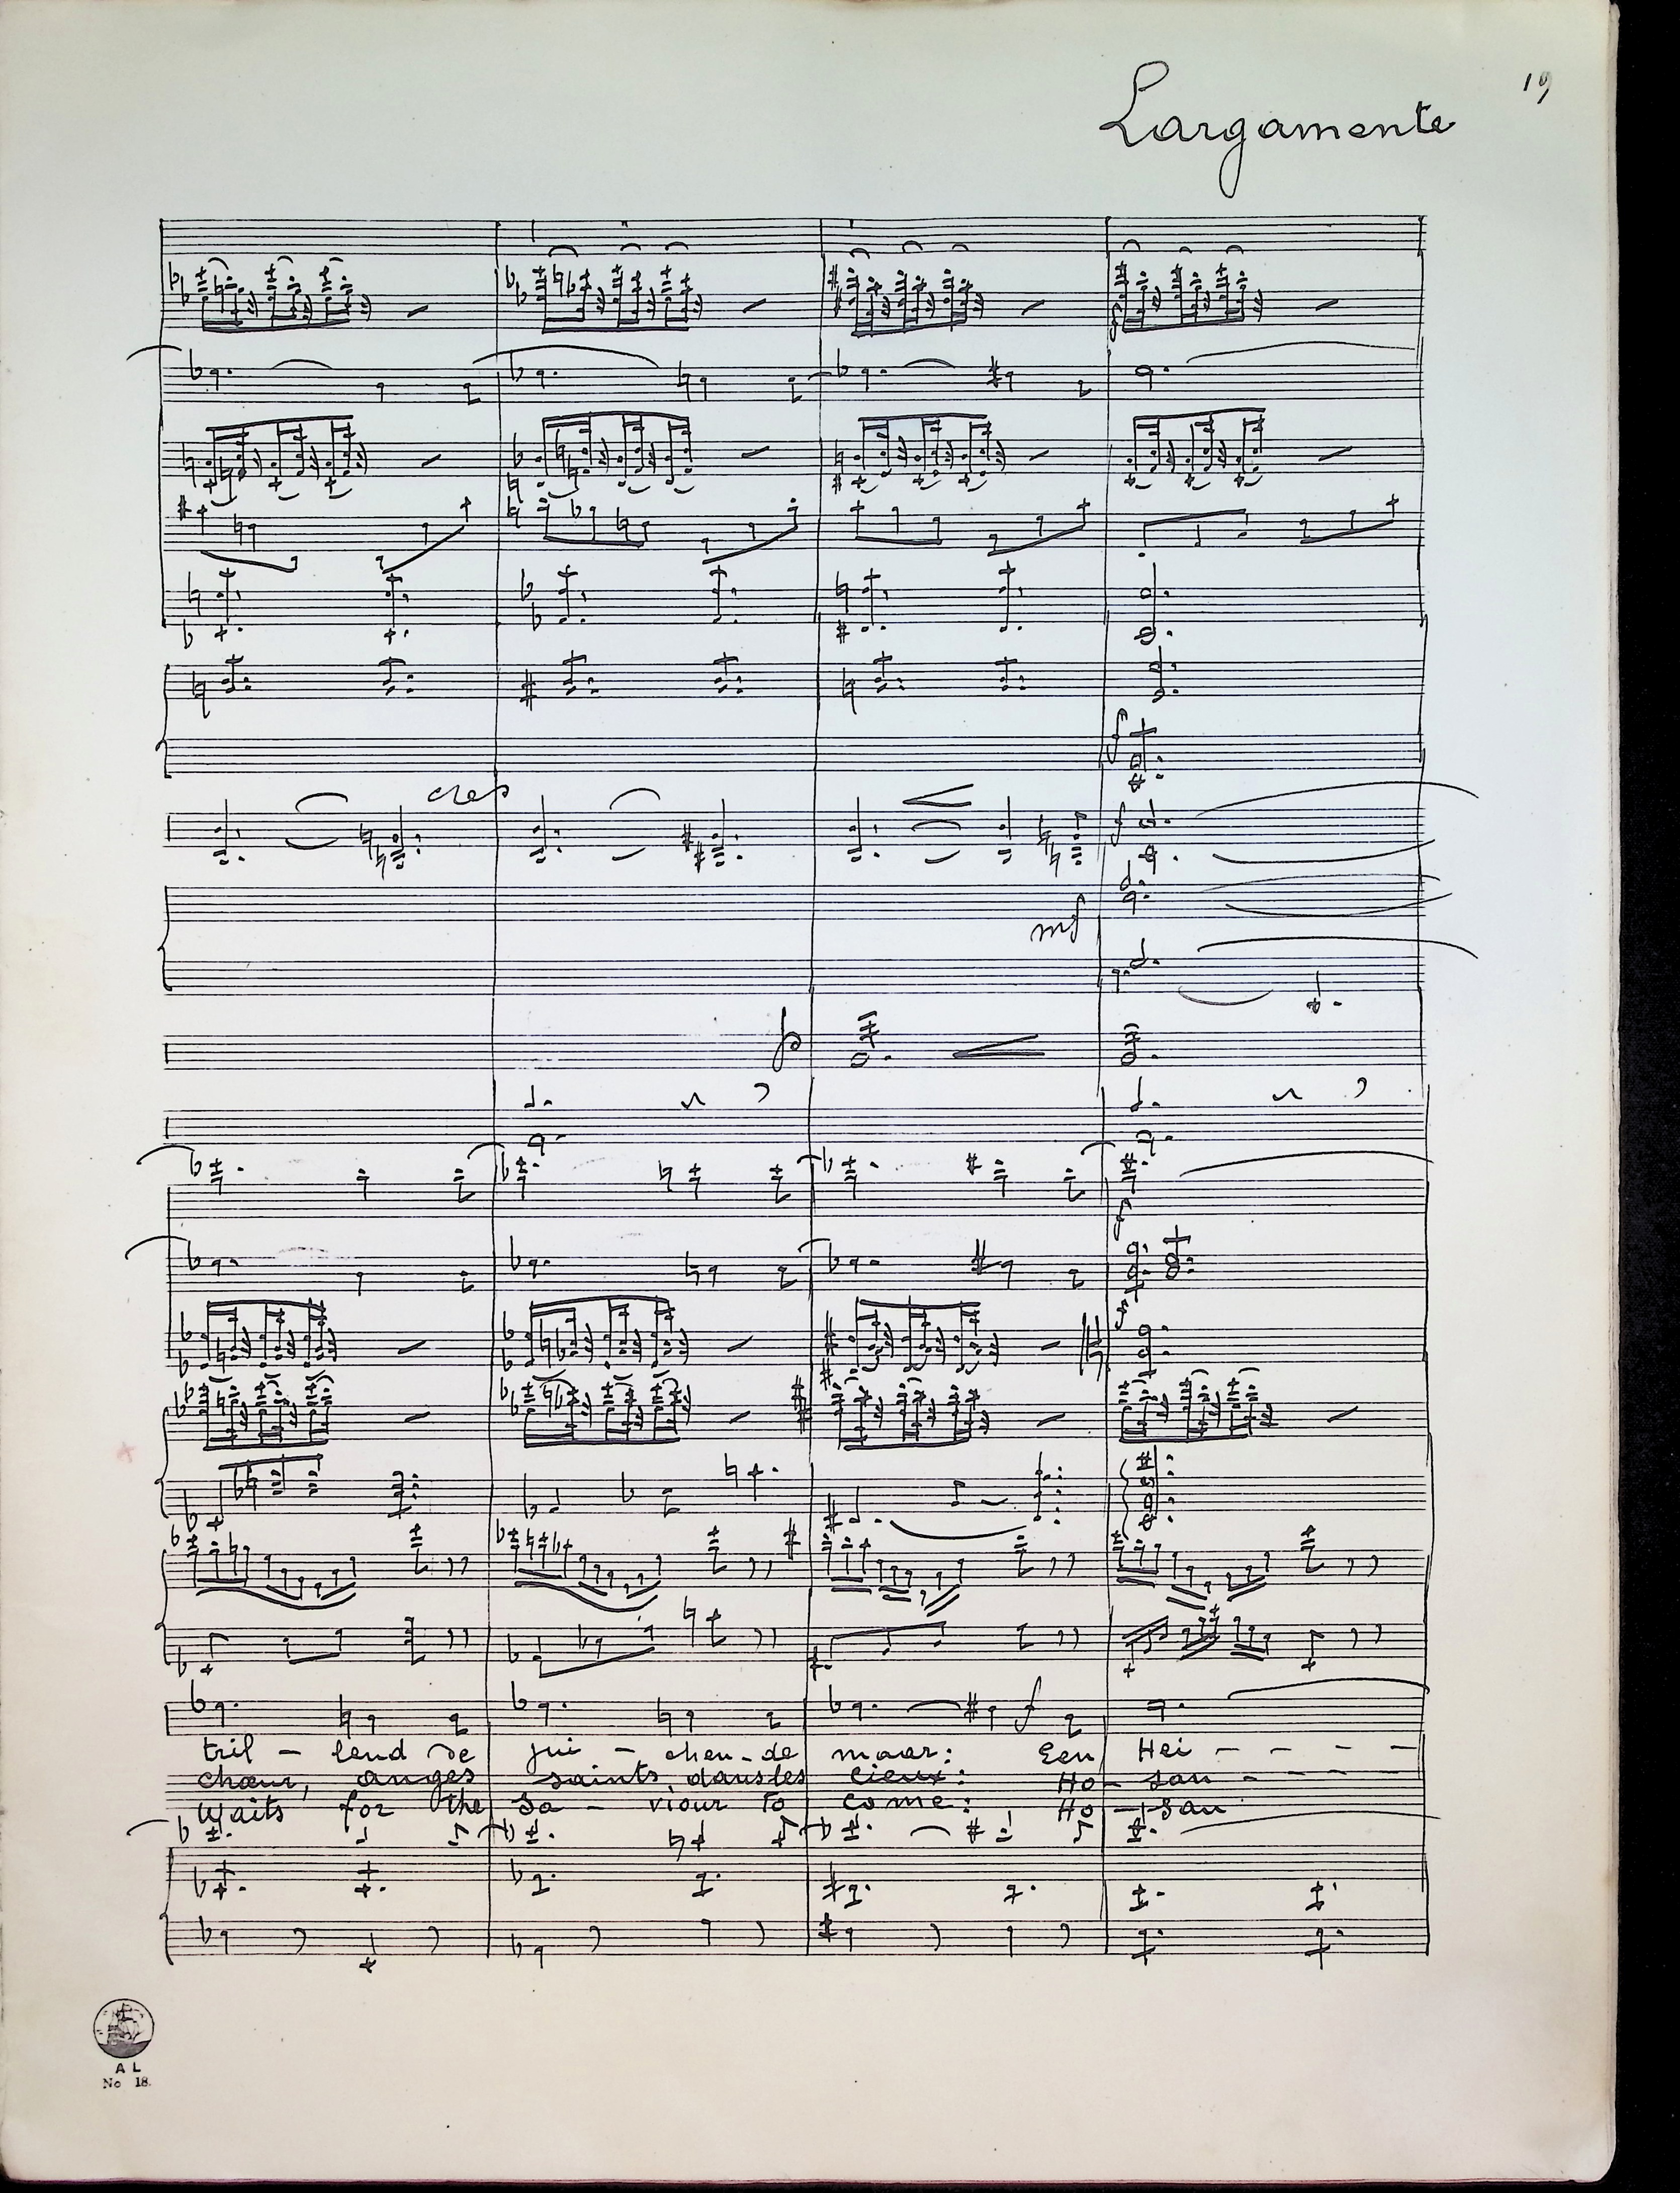 19
Largamente
cres
f
f
mf
p
f
f
f
tril - lend de jui - chen - de maar: Een Hei - - - - -
chœur, anges saints, dans les cieux: Ho - san - - - -
Waits for the Sa - viour to come: Ho - san
A L
No 18.